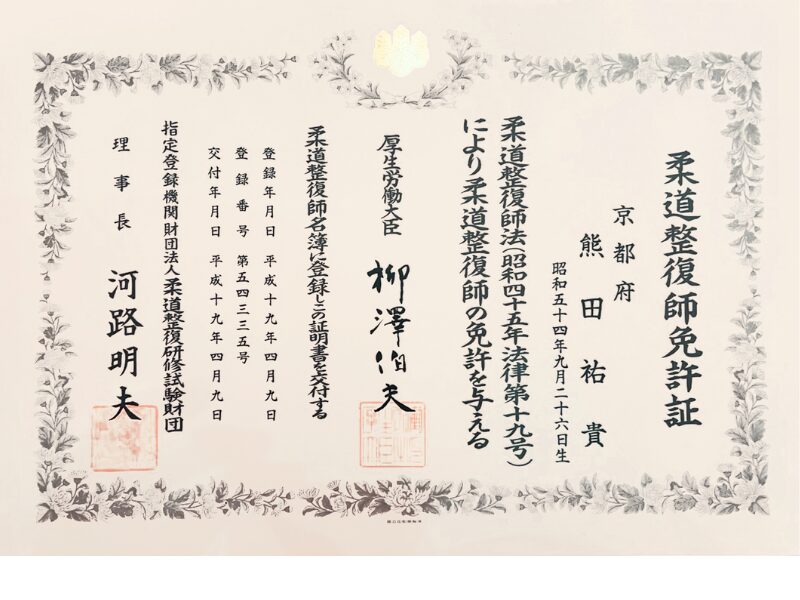 柔道整復師免許証
京都府
熊田祐貴
昭和五十四年九月二十六日生
柔道整復師法(昭和四十五年法律第十九号)
により柔道整復師の免許を与える
厚生労働大臣 柳澤伯夫
柔道整復師名簿に登録しこの証明書を交付する
登録年月日 平成十九年四月九日
登録番号 第五四三三五号
交付年月日 平成十九年四月九日
指定登録機関財団法人柔道整復研修試験財団
理事長 河路明夫